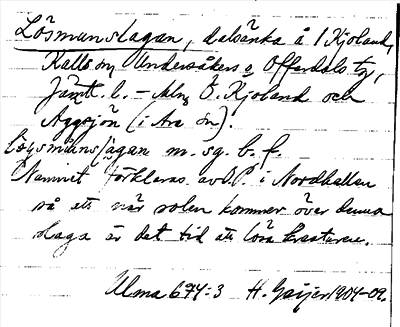 Lösmanslagan, dalsänka å / Kjoland,
Kalls sn, Undersåkers o Offerdals tg,
Jämtl. l. – Ml. Ö. Kjoland och
Äggsjön (i Åre sn).
lö̀gsmánsḷagan m. sg. b. f.
Namnet förklaras av D.P. i Nordhallen
så att när solen kommer över denna
slaga är det tid att lösa kreaturen.
Ulma 674:3 H. Geijer 1904-09.